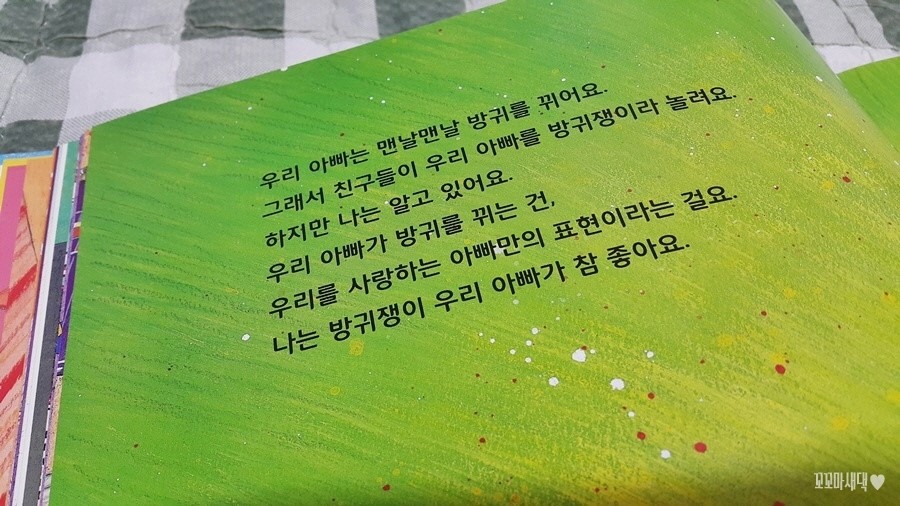 우리 아빠는 맨날맨날 방귀를 뀌어요.
그래서 친구들이 우리 아빠를 방귀쟁이라 놀려요.
하지만 나는 알고 있어요.
우리 아빠가 방귀를 뀌는 건,
우리를 사랑하는 아빠만의 표현이라는 걸요.
나는 방귀쟁이 우리 아빠가 참 좋아요.
꼬꼬마새댁♥